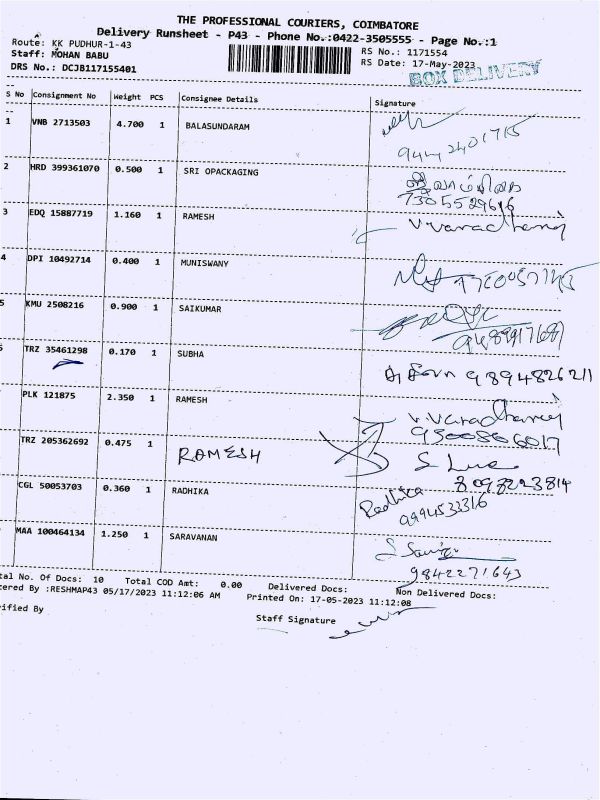 THE PROFESSIONAL COURIERS, COIMBATORE
Delivery Runsheet - P43 - Phone No.:0422-3505555 - Page No.:1
Route: KK PUDHUR-1-43
RS No.: 1171554
Staff: MOHAN BABU
RS Date: 17-May-2023
DRS No.: DCJB117155401
BOX DELIVERY
S No Consignment No Weight PCS Consignee Details Signature
1 VNB 2713503 4.700 1 BALASUNDARAM
2 HRD 399361070 0.500 1 SRI OPACKAGING
7305529616
3 EDQ 15887719 1.160 1 RAMESH V.Varadharaj
4 DPI 10492714 0.400 1 MUNISWANY
5 KMU 2508216 0.900 1 SAIKUMAR
TRZ 35461298 0.170 1 SUBHA
9894826211
PLK 121875 2.350 1 RAMESH V.Varadharaj
9300866017
TRZ 205362692 0.475 1 RAMESH
8098223814
CGL 50053703 0.360 1 RADHIKA Radhika
9994533316
MAA 100464134 1.250 1 SARAVANAN
9842271643
tal No. Of Docs: 10 Total COD Amt: 0.00 Delivered Docs: Non Delivered Docs:
tered By :RESHMAP43 05/17/2023 11:12:06 AM Printed On: 17-05-2023 11:12:08
rified By
Staff Signature